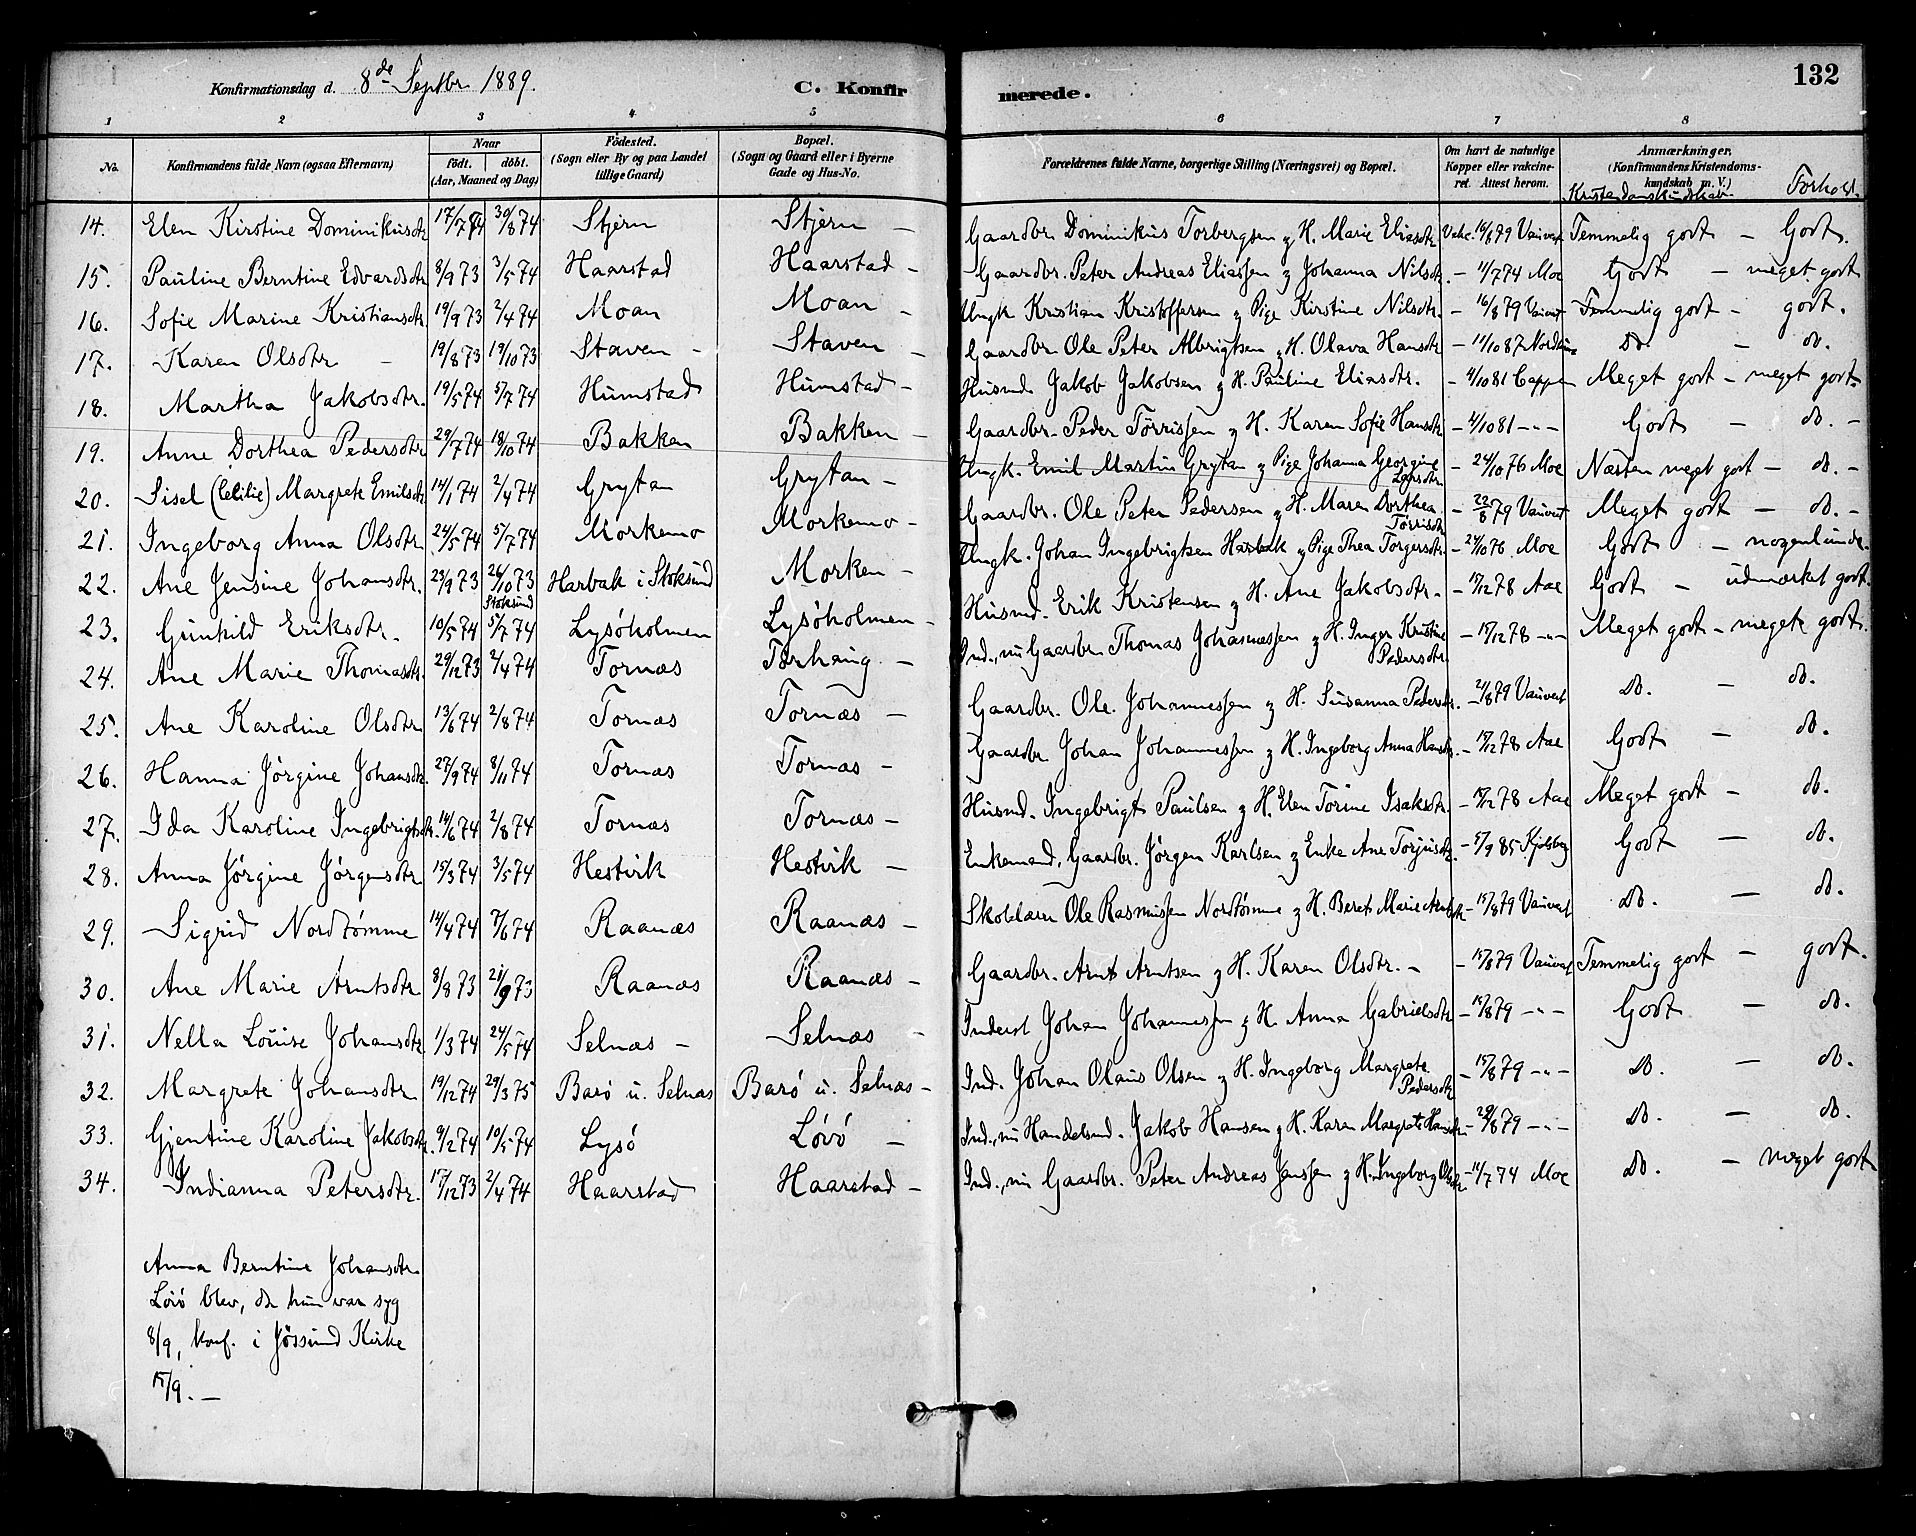 Konfirmationsdag d. 8de Septbr 1889. C. Konfirmerede. 132
1 2 3 4 5 6 7 8
No. Konfirmandens fulde Navn (ogsaa Efternavn) Naar født. døbt. (Aar, Maaned og Dag) Fødested. (Sogn eller By og paa Landet tillige Gaard) Bopæl. (Sogn og Gaard eller i Byerne Gade og Hus-No. Forældrenes fulde Navne, borgerlige Stilling (Næringsvei) og Bopæl. Om havt de naturlige Kopper eller vakcineret. Attest herom. Anmærkninger, (Konfirmandens Kristendomskundskab m. V.) Kristendomskundskab Forhold.
14. Elen Kirstine Dominikusdtr 17/7 74 30/8 74 Stjern Stjern - Gaardbr. Dominikus Torbergsen og H. Marie Eliasdtr Vakc. 16/8 79 Vauvert Temmelig godt - Godt.
15. Pauline Berntine Edvardsdtr 8/9 73 3/5 74 Haarstad Haarstad - Gaardbr. Peter Andreas Eliassen og Johanna Nilsdtr - 11/7 74 Moe Godt - meget godt
16. Sofie Marine Kristiansdtr. 19/9 73 2/4 74 Moan Moan - Ungk. Kristian Kristoffersen og Pige Kirstine Nilsdtr. - 16/8 79 Vauvert Temmelig godt - godt.
17. Karen Olsdtr - 19/8 73 19/10 73 Staven - Staven - Gaardbr. Ole Peter Albrigtsen og H. Olava Hansdtr - 14/10 87 Do. - do.
18. Martha Jakobsdtr. 19/5 74 5/7 74 Humstad Humstad - Husmd. Jakob Jakobsen og H. Pauline Eliasdtr. - 4/10 81 Cappe Meget godt - meget godt
19. Anne Dorthea Pedersdtr 29/7 74 18/10 74 Bakken Bakken - Gaardbr. Peder Tørrissen og H. Karen Sofie Hansdtr - 4/10 81 -"- Godt - do. -
20. Sisel (Cecilie) Margrete Emilsdtr 14/1 74 2/4 74 Grytan Grytan - Ungk. Emil Martin Grytan og Pige Johanna Georgine Larsdtr. - 24/10 76 Moe Næsten meget godt - do. -
21. Ingeborg Anna Olsdtr 24/5 74 5/7 74 Morkemo Morkemo - Gaardbr. Ole Peter Pedersen og H. Maren Dorthea Tørrisdtr - 22/8 79 Vauvert Meget godt - do. -
22. Ane Jensine Johansdtr. 23/9 73 26/10 73 Stoksund Harbak i Stoksund Morken - Ungk. Johan Ingebrigtsen Harbak og Pige Thea Torgersdtr. - 24/10 76 Moe Godt - nogenlunde.
23. Gunhild Eriksdtr. 10/5 74 5/7 74 Lysøholmen Lysøholmen - Husmd. Erik Kristensen og H. Ane Jakobsdtr. - 17/12 78 Aae Godt - udmærket godt.
24. Ane Marie Thomasdtr. 29/12 73 2/4 74 Tornæs Tørhaug - Ind., nu Gaardbr. Thomas Johannessen og H. Inger Kristine Pedersdtr. - 17/12 78 -"- Meget godt - meget godt.
25. Ane Karoline Olsdtr 13/6 74 2/8 74 Tornæs Tornæs - Gaardbr. Ole Johannessen og H. Susanna Pedersdtr. - 21/8 79 Vauvert Do. - do.
26. Hanna Jørgine Johansdtr. 27/9 74 8/11 74 Tornæs Tornæs - Gaardbr Johan Johannessen og H. Ingeborg Anna Hansdtr. - 17/12 78 Aae Godt - do.
27. Ida Karoline Ingebrigtsdtr. 19/6 74 2/8 74 Tornæs Tornæs - Husmd. Ingebrigt Paulsen og H. Elen Torine Isaksdtr. - 17/12 78 Aae Meget godt - do.
28. Anna Jørgine Jørgensdtr 15/3 74 3/5 74 Hestvik Hestvik - Enkemand, Gaardbr. Jørgen Karlsen og Enke Ane - 5/9 85 Godt - do.
29. Sigrid Nordtømme 14/4 74 7/6 74 Raanæs Raanæs - Skolelærer Ole Rasmussen Nordtømme og H. Beret Marie - 15/8 79 Vauvert Do. - do.
30. Ane Marie Arntsdtr 8/8 73 21/9 73 Raanæs Raanæs - Gaardbr. Arnt Arntsen og H. Karen Olsdtr. - - 15/8 79 Vauvert Temmelig godt - godt.
31. Nella Louise Johansdtr 1/3 74 24/5 74 Selnæs - Selnæs - Inderst Johan Johannessen og H Anna Gabrielsdtr - 15/8 79 -"- Godt - do.
32. Margrete Johansdtr 19/12 74 29/3 75 Barø u. Selnæs Barø u. Selnæs - Ind. Johan Olaus Olsen og H. Ingeborg Margrete Pedersdtr - 15/8 79 -"- Do. - do.
33. Gjertine Karoline Jakobsdtr. 9/2 74 10/5 74 Lysø Løvø - Ind., nu Handelsmd. Jakob Hansen og H. Karen Margrete Hansdtr. - 29/8 79 -"- Do. - do.
34. Indianna Petersdtr. 17/12 73 2/4 74 Haarstad Haarstad - Ind., nu Gaardbr. Peter Andreas Jenssen og H. Ingeborg Olsdtr. - 11/7 74 Moe Do. - meget godt
Anna Berntine Johansdtr.
Løvø blev, da hun var syg
8/9, konf. i Jøssund Kirke
15/9. -